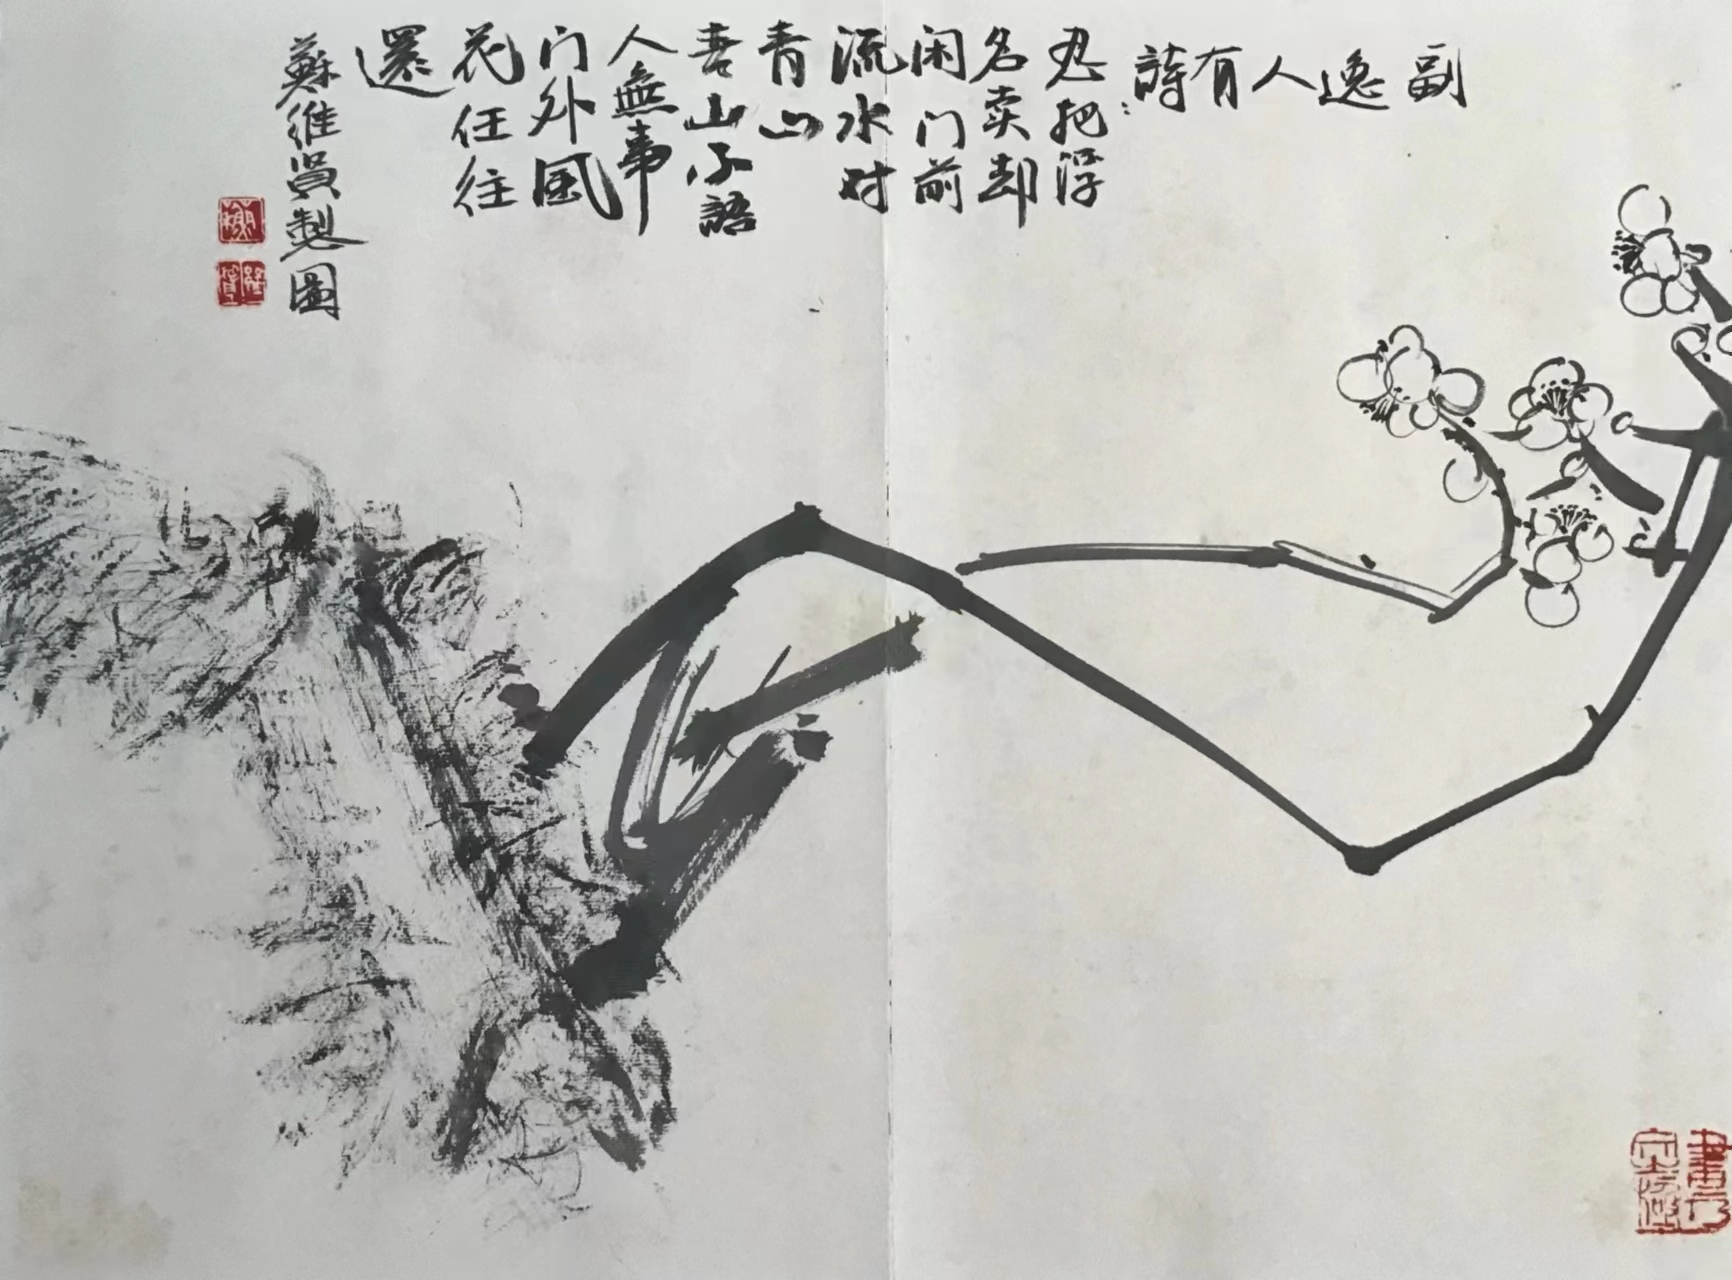 副逸人有詩：
忍把浮
名卖却
闲门前
流水对
青山
青山不語
人無事
门外風
花任往
還
蘇維貟製圖